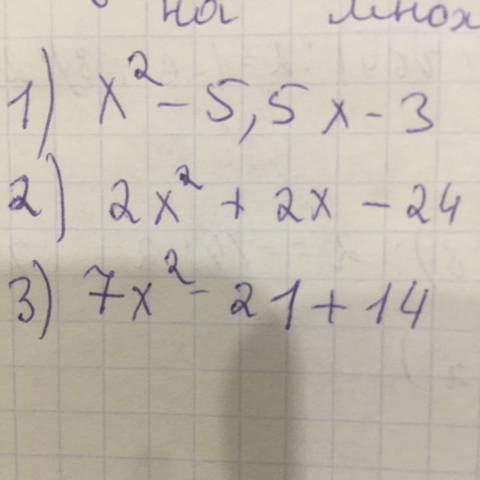 на множ
1) x² - 5,5x - 3
2) 2x² + 2x - 24
3) 7x² - 21 + 14